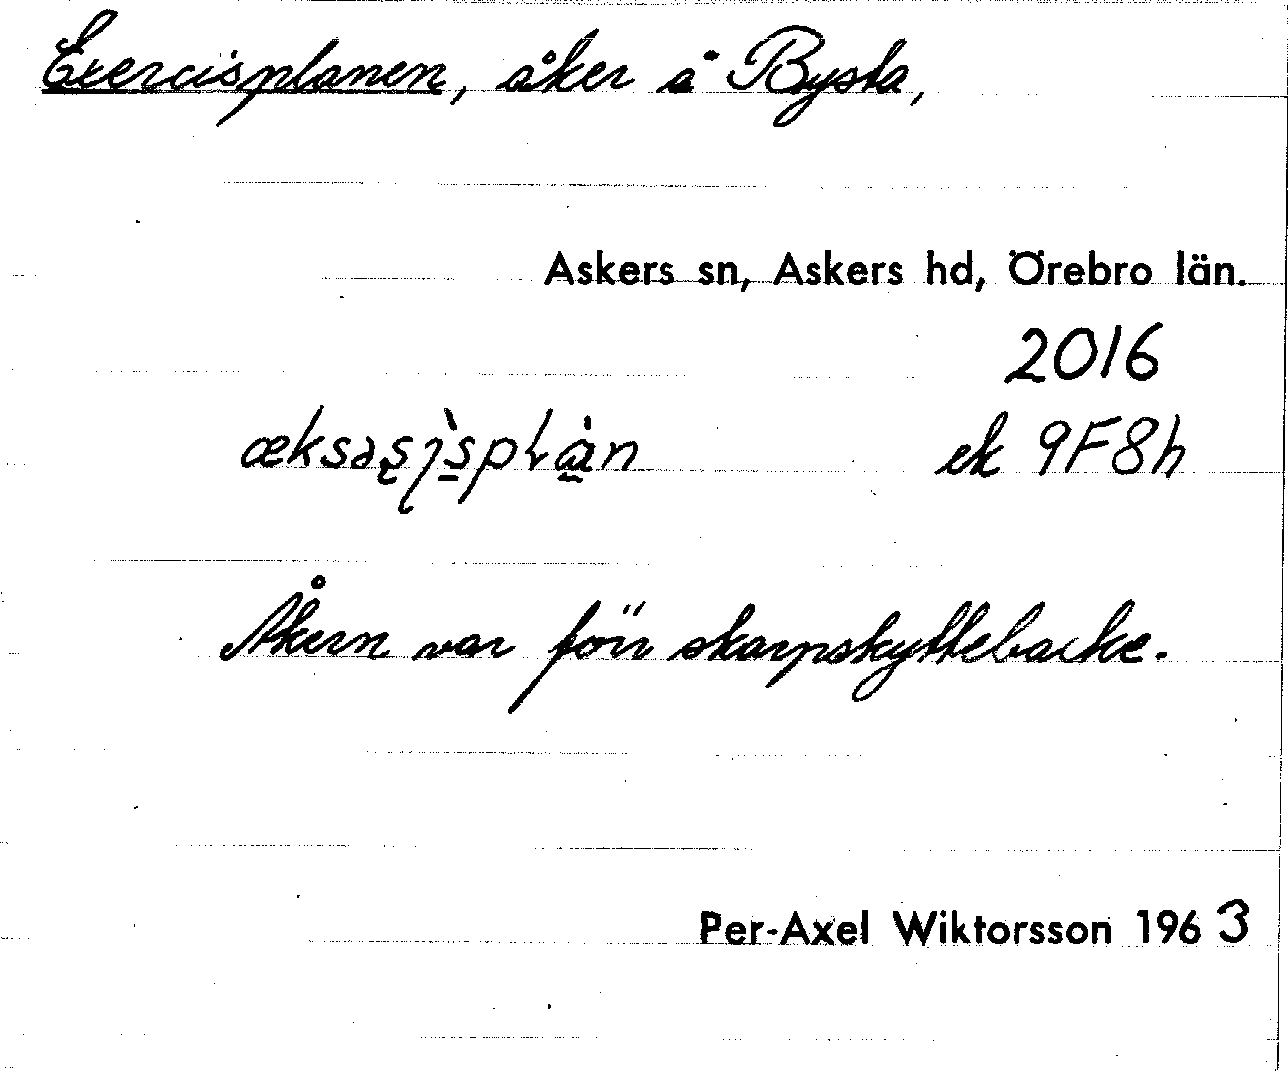 Exercisplanen, åker å Bysta,
Askers sn, Askers hd, Örebro län.
2016
ek 9F8h
Åkern var förr skarpskyttebacke.
Per-Axel Wiktorsson 1963